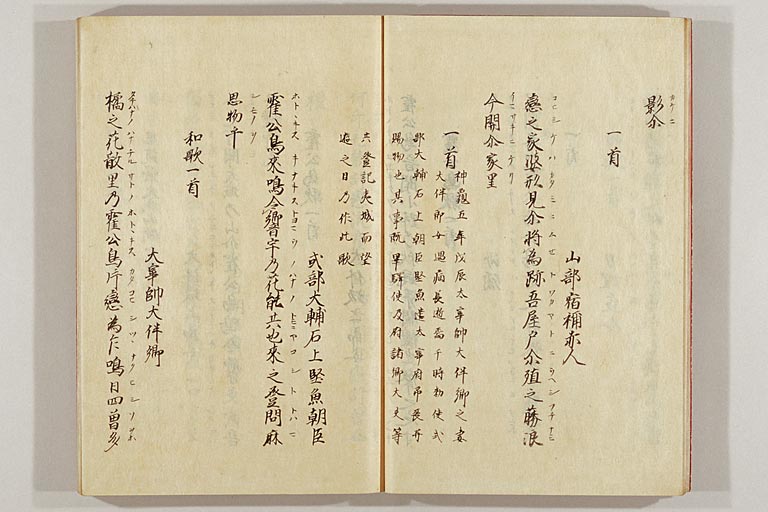 影尓
カケニ
一首
山部宿祢赤人
戀之家婆形見尓将為跡吾屋戸尓殖之藤浪
今開尓家里
イマサキニケリ
一首
神龜五年戊辰太宰帥大伴卿之妻
大伴郎女遇病長逝焉于時勅使式
部大輔石上朝臣堅魚遣太宰府弔喪并
賜物也其事既畢驛使及府諸卿大夫等
共登記夷城而望
遊之日乃作此歌
式部大輔石上堅魚朝臣
霍公鳥來鳴令響宇乃花能共也來之登問麻
思物乎
シモノヲ
和歌一首
大宰帥大伴卿
橘之花散里乃霍公鳥片戀為乍鳴日四曽多